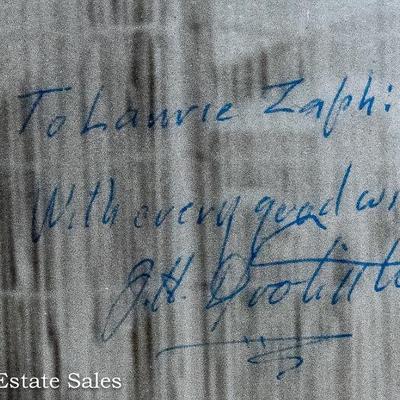 To Laurie Zaph:
With every good wi
J.H.
Estate Sales